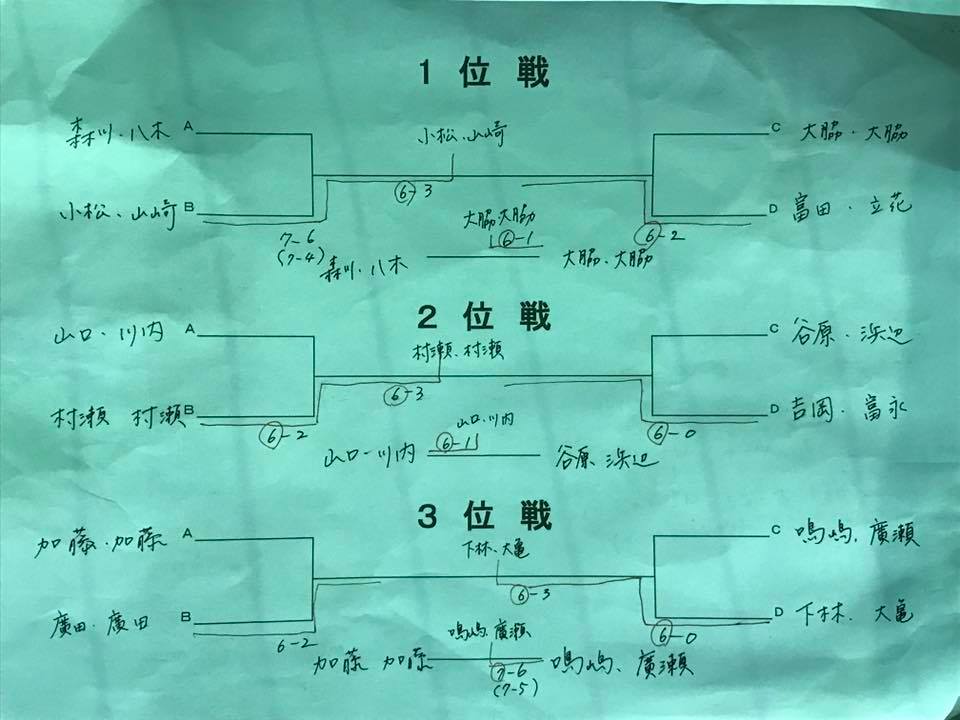 1位戦
森川・八木 A
小松、山崎
C 大脇・大脇
6-3
小松、山崎 B
D 富田・立花
7-6
(7-4)
大脇 大脇
6-1
6-2
森川・八木
大脇、大脇
2位戦
山口・川内 A
村瀬、村瀬
C 谷原・浜辺
6-3
村瀬 村瀬 B
D 吉岡・富永
6-2
山口・川内
6-1
6-0
山口・川内
谷原 浜辺
3位戦
加藤・加藤 A
下林、大亀
C 鳴嶋、廣瀬
6-3
廣田・廣田 B
D 下林、大亀
6-2
鳴嶋、廣瀬
6-0
加藤 加藤
7-6
(7-5)
鳴嶋、廣瀬